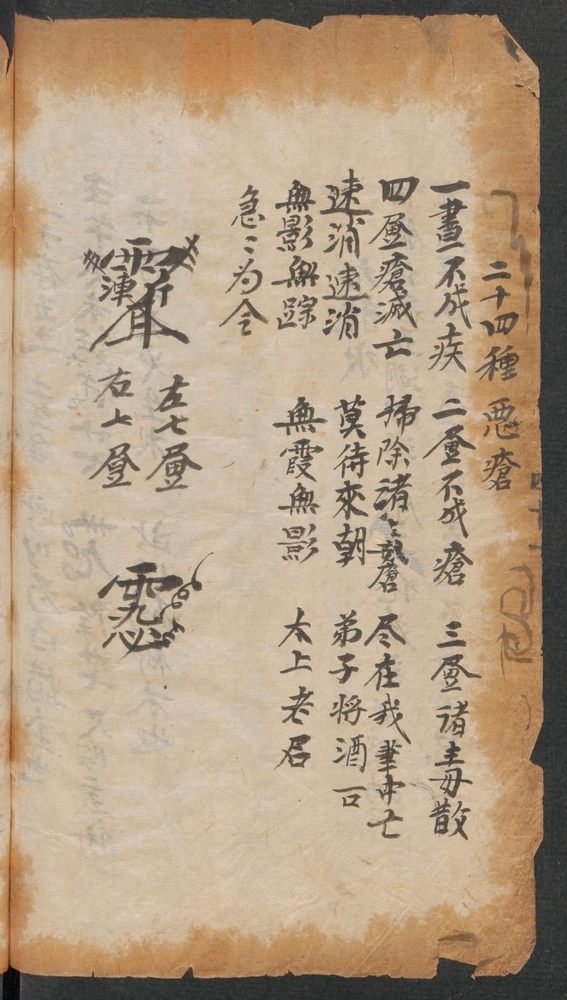 二十四種惡瘡
一畫不成疾 二畫不成瘡 三畫諸毒散
四畫瘡滅亡 掃除諸瘡 尽在我筆中亡
速消速消 莫待來朝 弟子將酒一口
無影無踪 無霞無影 太上老君
急々为令
左七畫
右七畫